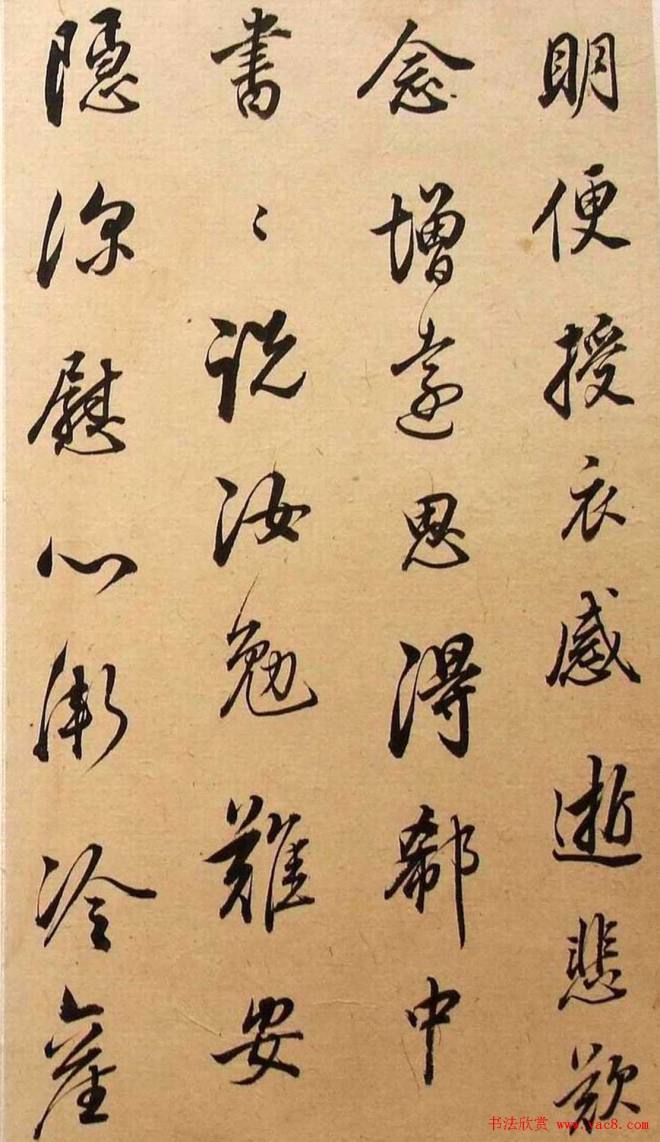 明便授衣感逝悲歎
念增遠思得郗中
書〻說汝勉難安
隱深慰心衛冷
书法欣赏 www.yac8.com